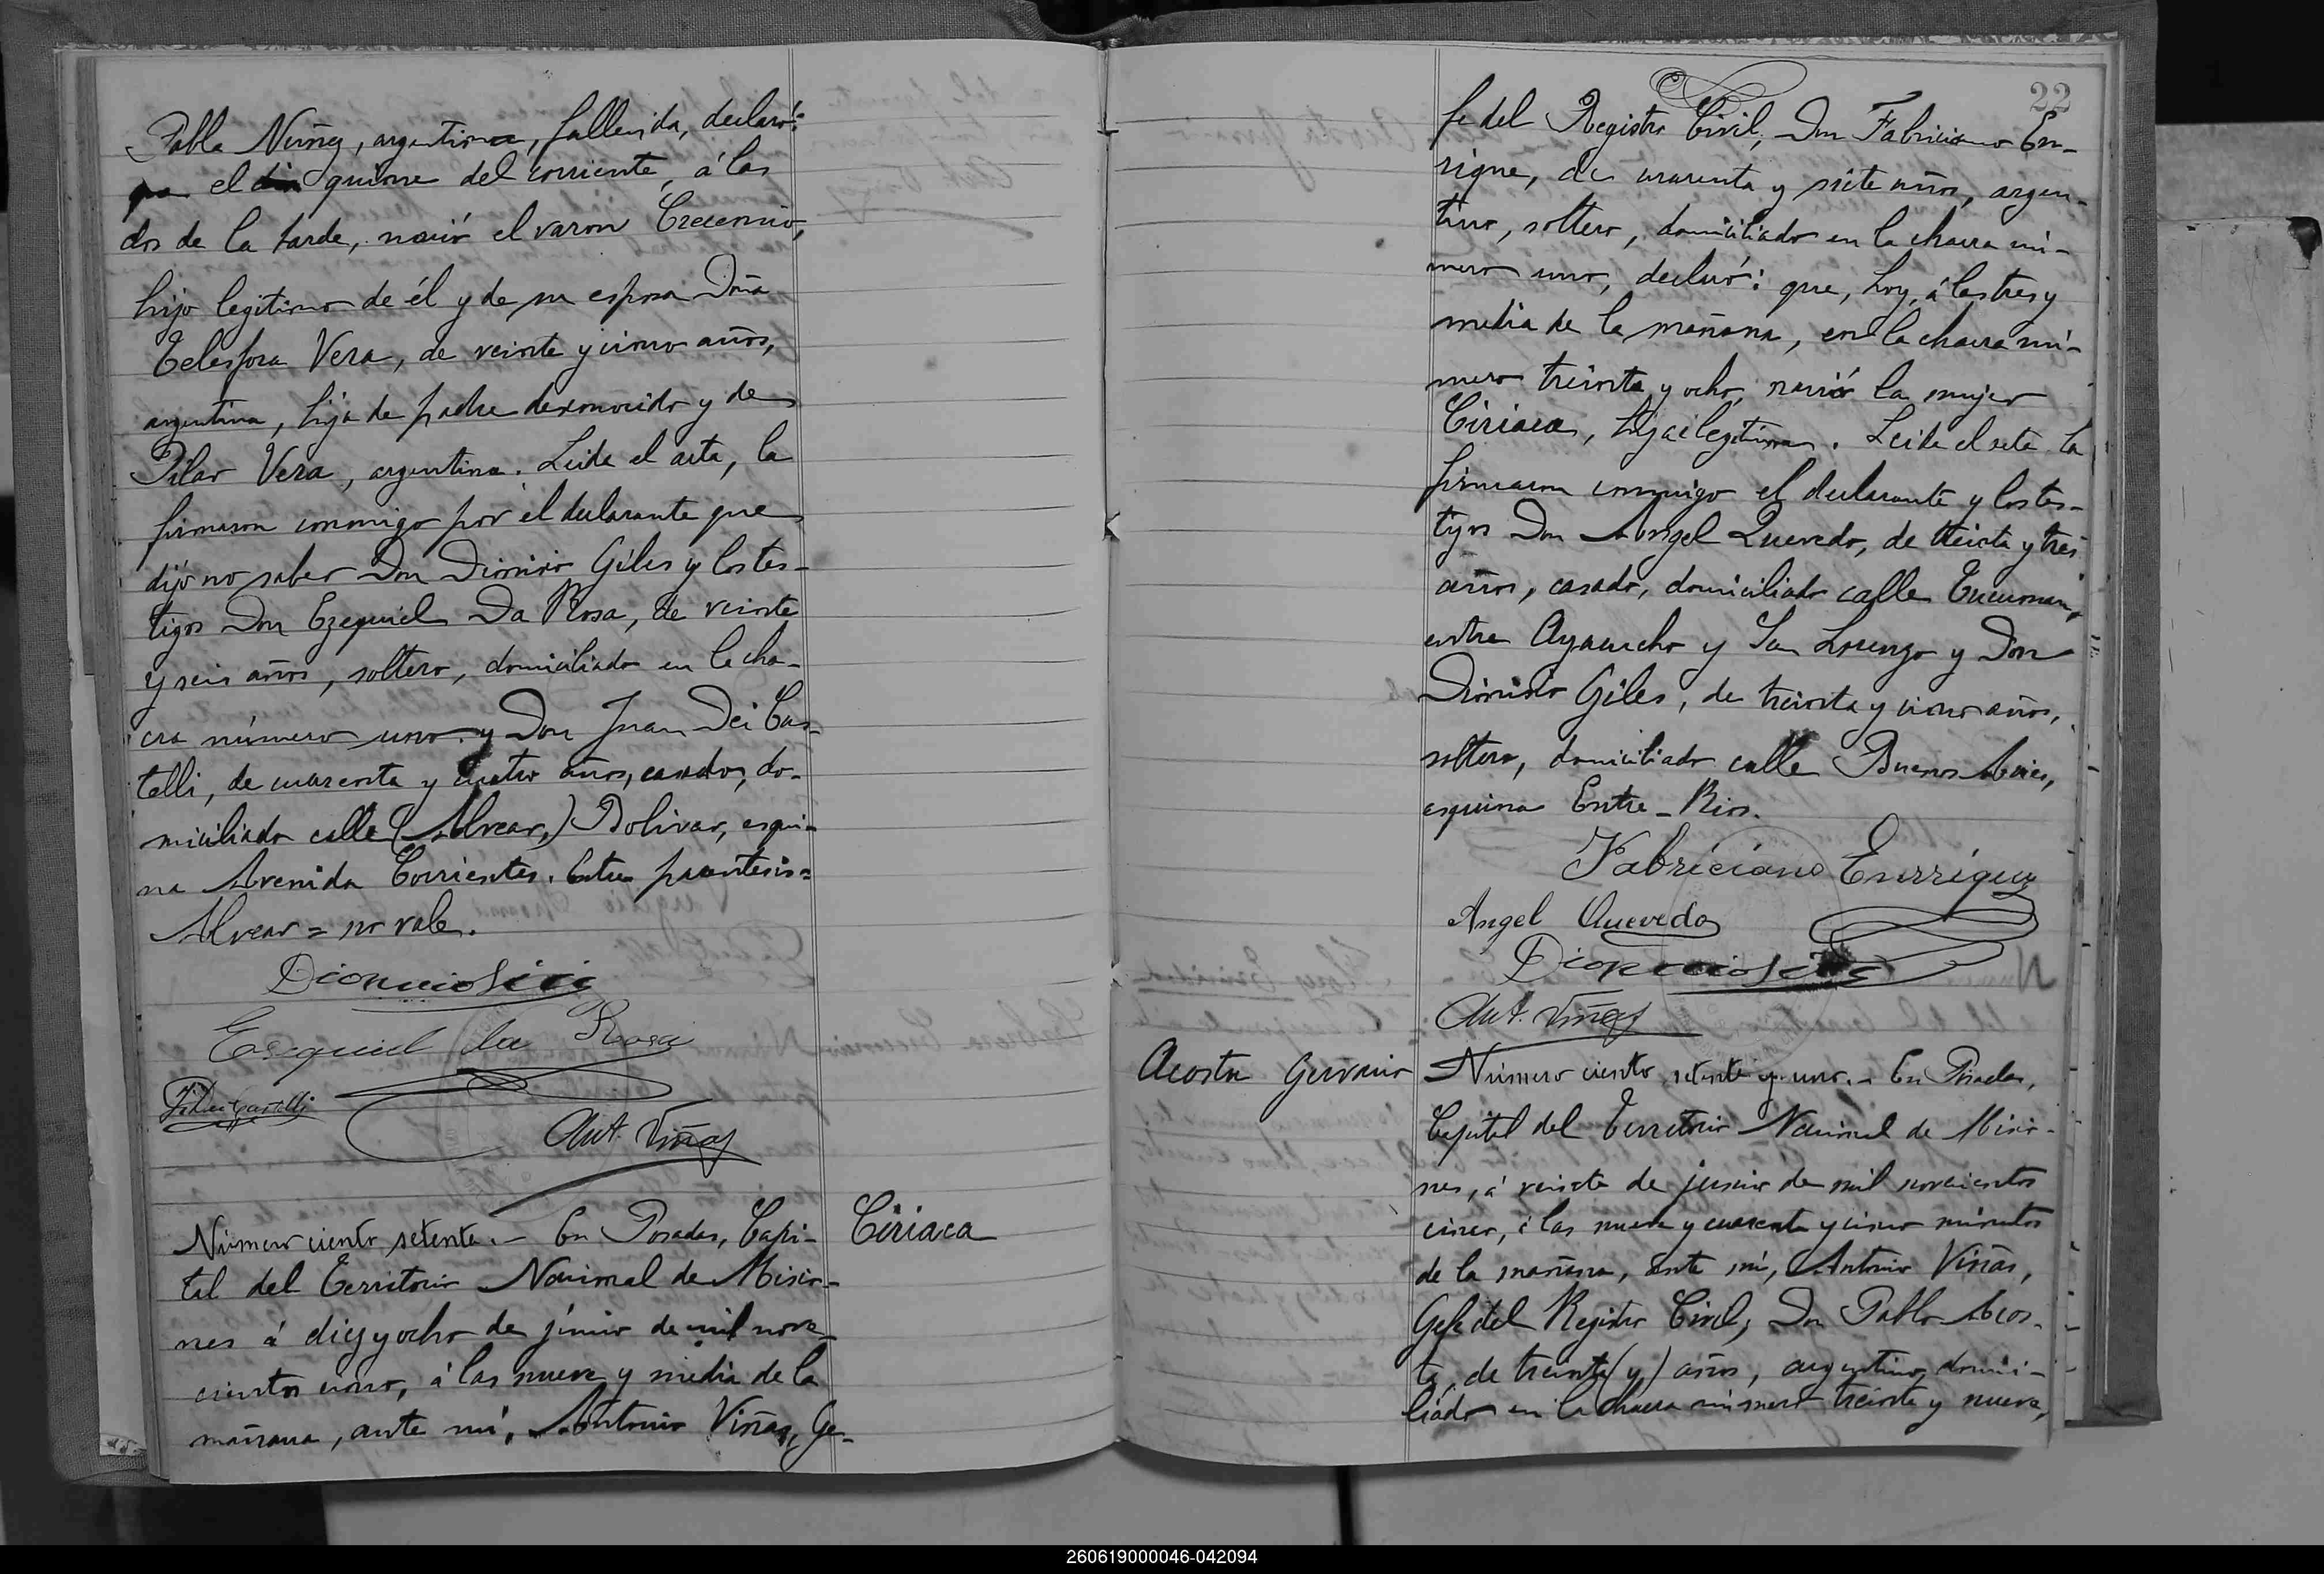 Pabla Nuñez, argentina, fallecida, declaró:
que el dia quince del corriente, á las
dos de la tarde, nació el varon Crecencio,
hijo legitimo de él y de su esposa Doña
Telesfora Vera, de veinte y cinco años,
argentina, hija de padre desconocido y de
Pilar Vera, argentina. Leida el acta, la
firmaron conmigo por el declarante que
dijo no saber Don Dionisio Giles y los tes-
tigos Don Ezequiel Da Rosa, de veinte
y seis años, soltero, domiciliado en la cha-
cra número uno y Don Juan Dei Cas-
telli, de cuarenta y cuatro años, casado, do-
miciliado calle (Alvear,) Bolivar, esqui-
na Avenida Corrientes. Entre parentesis=
Alvear = no vale.
Dionicio
Esequiel da Rosa
Castelli
Ant. Viñas
Número ciento setenta.- En Posadas, Capi-
tal del Territorio Nacional de Misio-
nes á diez y ocho de júnio de mil nove-
cientos cinco, á las nueve y media de la
mañana, ante mí, Antonio Viñas, Ge-
Ciriaca
22
fe del Registro Civil, Don Fabriciano En-
rique, de cuarenta y siete años, argen-
tino, soltero, domiciliado en la chacra nú-
mero uno, declaró: que, hoy, á las tres y
media de la mañana, en la chacra nú-
mero treinta y ocho, nació la mujer
Ciriaca, hija ilegitima. Leida el acta la
firmaron conmigo el declarante y los tes-
tigos Don Angel Quevedo, de treinta y tres
años, casado, domiciliado calle Tucuman,
entre Ayacucho y San Lorenzo y Don
Dionisio Giles, de treinta y cinco años,
soltero, domiciliado calle Buenos Aires,
esquina Entre-Rios.
Fabriciano Enrrique
Angel Quevedo
Dionicio
Ant. Viñas
Acosta Gervasio
Número ciento setenta y uno.- En Posadas,
Capital del Territorio Nacional de Misio-
nes, á veinte de junio de mil novecientos
cinco, á las nueve y cuarenta y cinco minutos
de la mañana, ante mí, Antonio Viñas,
Gefe del Registro Civil, Don Pablo Acos-
ta, de treinta (y) años, argentino, domici-
liado en la chacra número treinta y nueve,
260619000046-042094